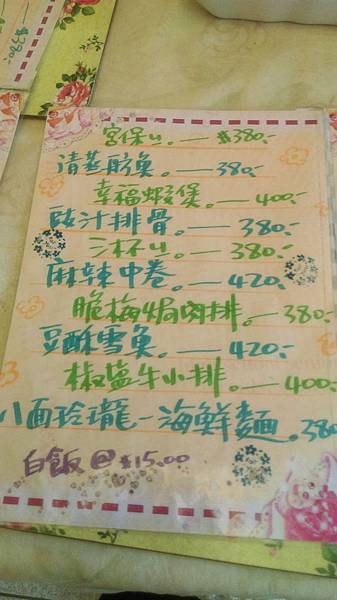 $380.-
宮保ㄐ。— $380.-
清蒸魴魚。— 380.-
幸福蝦煲。— 400.-
豉汁排骨。— 380.-
三杯ㄐ。— 380.-
麻辣中卷。— 420.-
脆梅焗肉排。— 380.-
豆酥雪魚。— 420.-
椒鹽牛小排。— 400.-
八面玲瓏—海鮮麵。380
白飯@$15.00